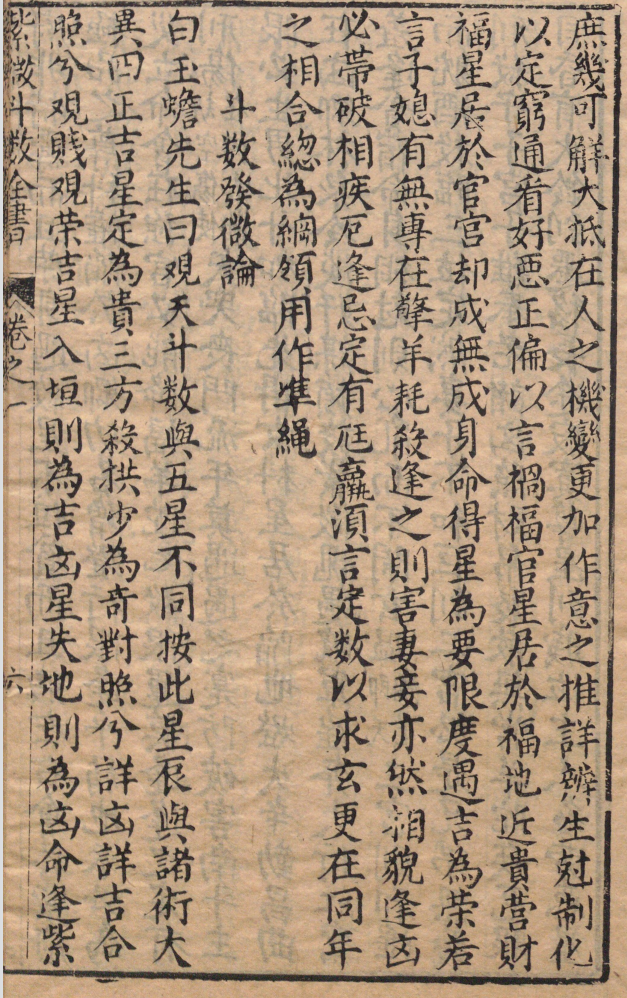 庶幾可觧大抵在人之機變更加作意之推詳辨生尅制化
以定窮通看好惡正偏以言禍福官星居於福地近貴营財
福星居於官宫却成無成身命得星為要限度遇吉為荣若
言子媳有無專在擎羊耗殺逢之則害妻妾亦然相貌逢凶
必帶破相疾厄逢忌定有尪羸湏言定数以求玄更在同年
之相合緫為綱領用作凖繩
斗数發微論
白玉蟾先生曰观天斗数與五星不同按此星辰與諸術大
異四正吉星定為貴三方殺拱少為竒對照兮詳凶詳吉合
照兮观賤观荣吉星入垣則為吉凶星失地則為凶命逢紫
紫微斗数全書 卷之一 六